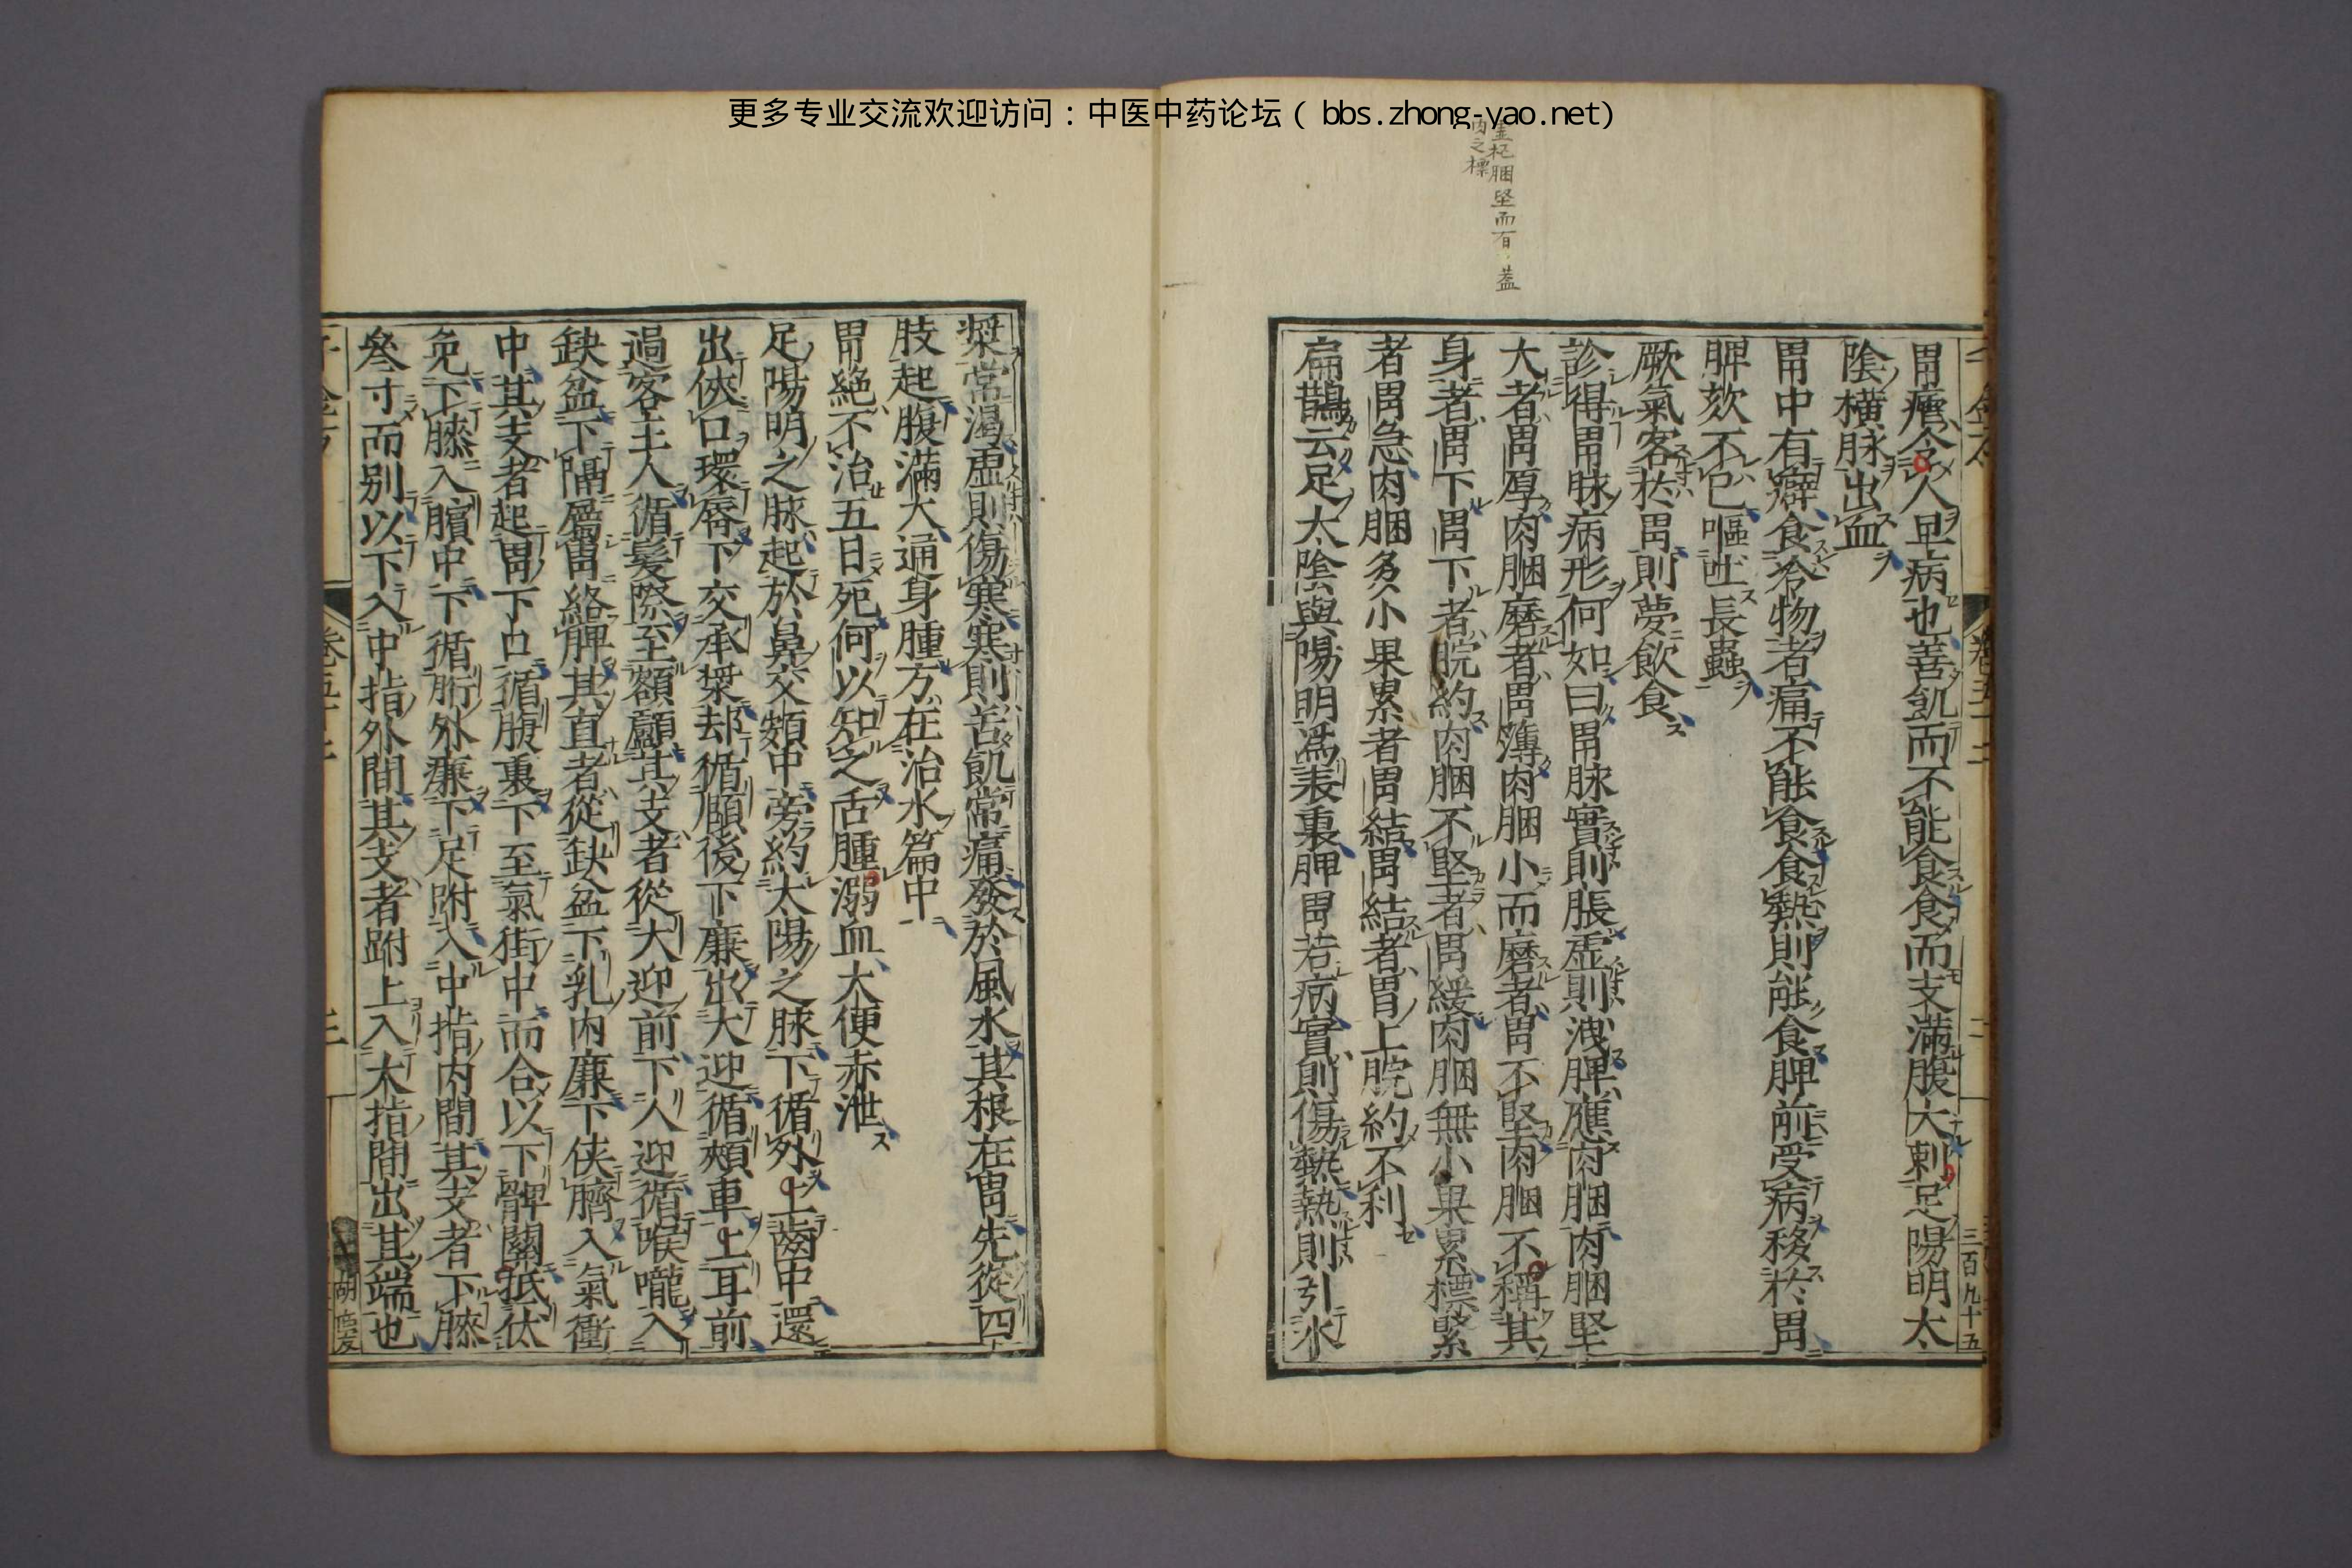 更多专业交流欢迎访问：中医中药论坛（bbs.zhong-yao.net）
胞堅而有蓋
肉之標
三百九十五
胃瘧令人旦病也善飢而不能食食而支滿腹大刺足陽明太
陰橫脉出血
胃中有癖食冷物者痛不能食食熱則能食脾前受病移於胃
脾欬不已嘔吐長蟲
厥氣客於胃則夢飲食
診得胃脉病形何如曰胃脉實則脹虛則洩脾應肉䐃肉䐃堅
大者胃厚肉䐃磨者胃薄肉䐃小而磨者胃不堅肉䐃不稱其
身者胃下胃下者脘約肉䐃不堅者胃緩肉䐃無小果累標緊
者胃急肉䐃多小果累者胃結胃結者胃上脘約不利
扁鵲云足太陰與陽明爲表裏脾胃若病實則傷熱熱則引水
漿常渴虛則傷寒寒則苦飢常痛發於風水其根在胃先從四
肢起腹滿大通身腫方在治水篇中
胃絕不治五日死何以知之舌腫溺血大便赤泄
足陽明之脉起於鼻交頞中旁約太陽之脉下循外上齒中還
出俠口環脣下交承漿却循頤後下廉出大迎循頰車上耳前
過客主人循髮際至額顱其支者從大迎前下人迎循喉嚨入
缺盆下隔屬胃絡脾其直者從缺盆下乳內廉下俠臍入氣衝
中其支者起胃下口循腹裏下至氣街中而合以下髀關抵伏
兔下膝入臏中下循胻外廉下足跗入中指內間其支者下膝
叄寸而別以下入中指外間其支者跗上入大指間出其端也